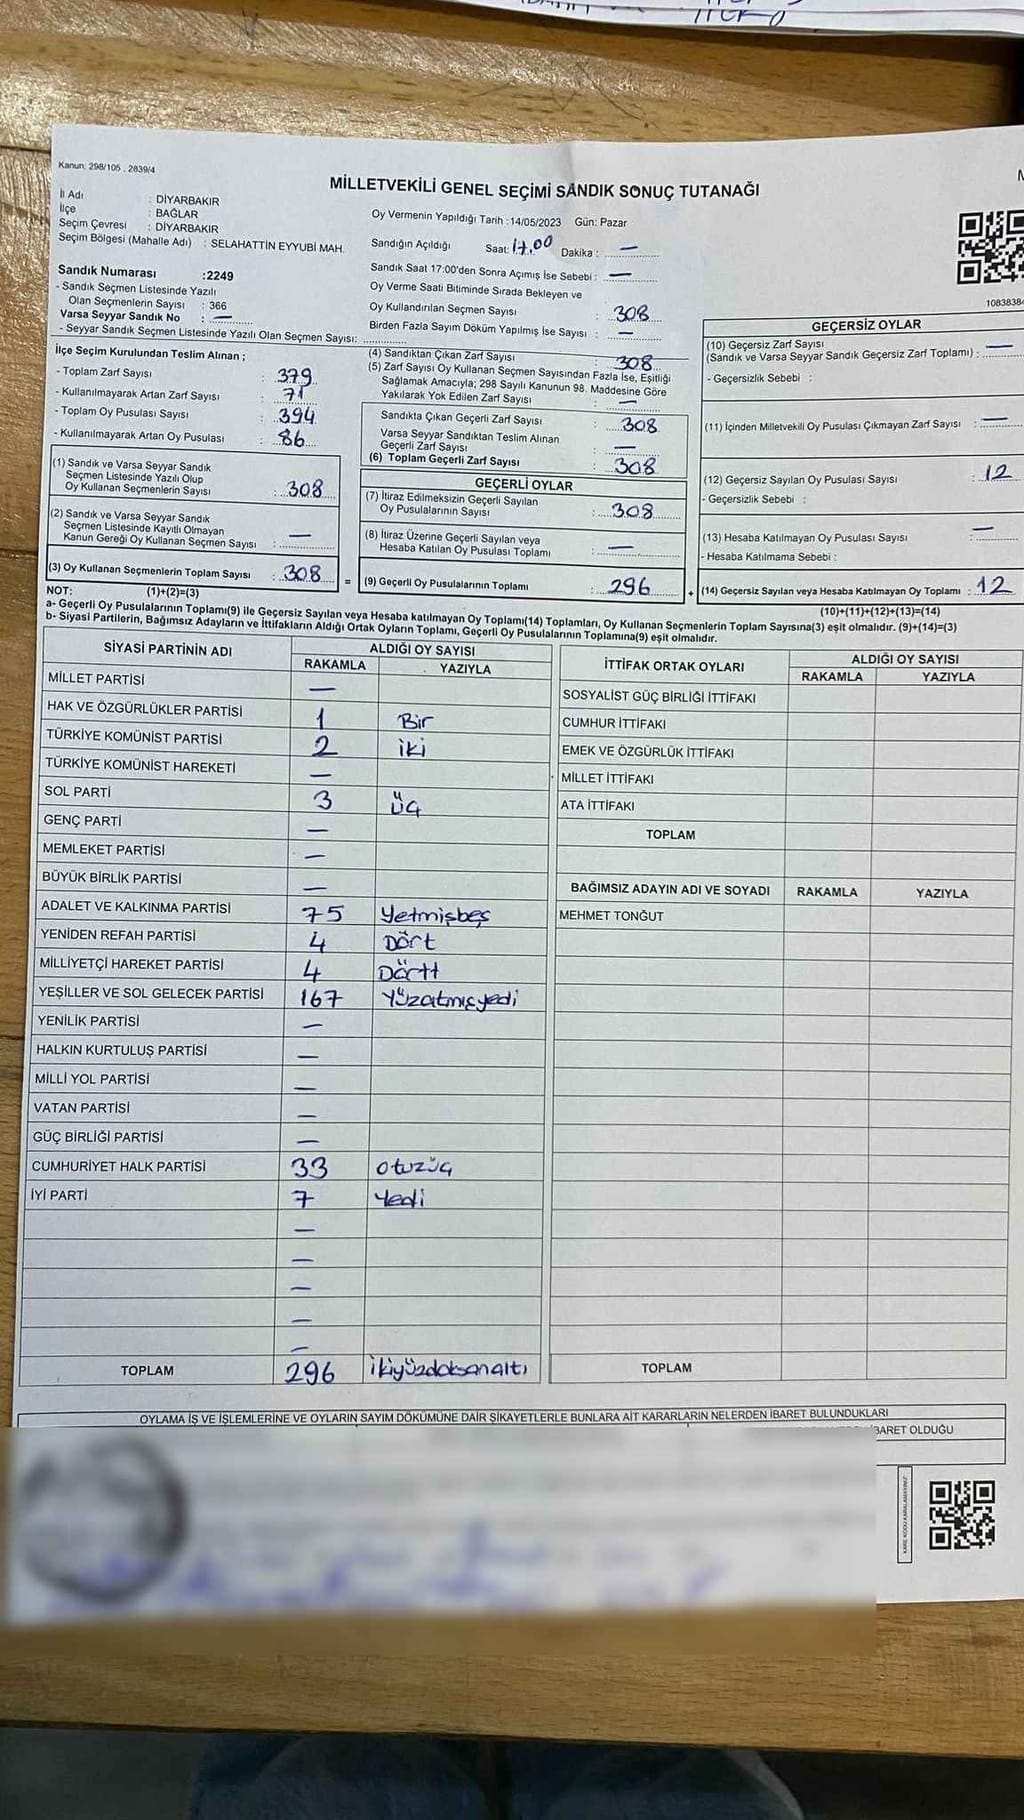 Kanun: 298/105 . 2839/4
MİLLETVEKİLİ GENEL SEÇİMİ SANDIK SONUÇ TUTANAĞI
İl Adı : DİYARBAKIR
İlçe : BAĞLAR
Seçim Çevresi : DİYARBAKIR
Seçim Bölgesi (Mahalle Adı) : SELAHATTİN EYYUBİ MAH.
Sandık Numarası :2249
- Sandık Seçmen Listesinde Yazılı
Olan Seçmenlerin Sayısı : 366
Varsa Seyyar Sandık No : —
- Seyyar Sandık Seçmen Listesinde Yazılı Olan Seçmen Sayısı:
Oy Vermenin Yapıldığı Tarih :14/05/2023 Gün: Pazar
Sandığın Açıldığı Saat: 17.00 Dakika : —
Sandık Saat 17:00'den Sonra Açımış İse Sebebi : —
Oy Verme Saati Bitiminde Sırada Bekleyen ve
Oy Kullandırılan Seçmen Sayısı : 308
Birden Fazla Sayım Döküm Yapılmış İse Sayısı : —
İlçe Seçim Kurulundan Teslim Alınan ;
- Toplam Zarf Sayısı : 379
- Kullanılmayarak Artan Zarf Sayısı : 71
- Toplam Oy Pusulası Sayısı : 394
- Kullanılmayarak Artan Oy Pusulası : 86
(1) Sandık ve Varsa Seyyar Sandık
Seçmen Listesinde Yazılı Olup
Oy Kullanan Seçmenlerin Sayısı : 308
(2) Sandık ve Varsa Seyyar Sandık
Seçmen Listesinde Kayıtlı Olmayan
Kanun Gereği Oy Kullanan Seçmen Sayısı : —
(3) Oy Kullanan Seçmenlerin Toplam Sayısı : 308 =
(4) Sandıktan Çıkan Zarf Sayısı : 308
(5) Zarf Sayısı Oy Kullanan Seçmen Sayısından Fazla İse, Eşitliği
Sağlamak Amacıyla; 298 Sayılı Kanunun 98. Maddesine Göre
Yakılarak Yok Edilen Zarf Sayısı : —
Sandıkta Çıkan Geçerli Zarf Sayısı : 308
Varsa Seyyar Sandıktan Teslim Alınan
Geçerli Zarf Sayısı : —
(6) Toplam Geçerli Zarf Sayısı : 308
GEÇERLİ OYLAR
(7) İtiraz Edilmeksizin Geçerli Sayılan
Oy Pusulalarının Sayısı : 308
(8) İtiraz Üzerine Geçerli Sayılan veya
Hesaba Katılan Oy Pusulası Toplamı : —
(9) Geçerli Oy Pusulalarının Toplamı : 296 +
10838384
GEÇERSİZ OYLAR
(10) Geçersiz Zarf Sayısı
(Sandık ve Varsa Seyyar Sandık Geçersiz Zarf Toplamı) : —
- Geçersizlik Sebebi :
(11) İçinden Milletvekili Oy Pusulası Çıkmayan Zarf Sayısı : —
(12) Geçersiz Sayılan Oy Pusulası Sayısı : 12
- Geçersizlik Sebebi :
(13) Hesaba Katılmayan Oy Pusulası Sayısı : —
- Hesaba Katılmama Sebebi :
(14) Geçersiz Sayılan veya Hesaba Katılmayan Oy Toplamı : 12
NOT: (1)+(2)=(3) (10)+(11)+(12)+(13)=(14)
a- Geçerli Oy Pusulalarının Toplamı(9) ile Geçersiz Sayılan veya Hesaba katılmayan Oy Toplamı(14) Toplamları, Oy Kullanan Seçmenlerin Toplam Sayısına(3) eşit olmalıdır. (9)+(14)=(3)
b- Siyasi Partilerin, Bağımsız Adayların ve İttifakların Aldığı Ortak Oyların Toplamı, Geçerli Oy Pusulalarının Toplamına(9) eşit olmalıdır.
SİYASİ PARTİNİN ADI ALDIĞI OY SAYISI
RAKAMLA YAZIYLA
MİLLET PARTİSİ —
HAK VE ÖZGÜRLÜKLER PARTİSİ 1 Bir
TÜRKİYE KOMÜNİST PARTİSİ 2 iki
TÜRKİYE KOMÜNİST HAREKETİ —
SOL PARTİ 3 üç
GENÇ PARTİ —
MEMLEKET PARTİSİ —
BÜYÜK BİRLİK PARTİSİ —
ADALET VE KALKINMA PARTİSİ 75 Yetmişbeş
YENİDEN REFAH PARTİSİ 4 Dört
MİLLİYETÇİ HAREKET PARTİSİ 4 Dörtt
YEŞİLLER VE SOL GELECEK PARTİSİ 167 Yüzatmışyedi
YENİLİK PARTİSİ —
HALKIN KURTULUŞ PARTİSİ —
MİLLİ YOL PARTİSİ —
VATAN PARTİSİ —
GÜÇ BİRLİĞİ PARTİSİ —
CUMHURİYET HALK PARTİSİ 33 otuzüç
İYİ PARTİ 7 Yedi
—
—
—
—
—
TOPLAM 296 ikiyüzdoksanaltı
İTTİFAK ORTAK OYLARI ALDIĞI OY SAYISI
RAKAMLA YAZIYLA
SOSYALİST GÜÇ BİRLİĞİ İTTİFAKI
CUMHUR İTTİFAKI
EMEK VE ÖZGÜRLÜK İTTİFAKI
MİLLET İTTİFAKI
ATA İTTİFAKI
TOPLAM
BAĞIMSIZ ADAYIN ADI VE SOYADI RAKAMLA YAZIYLA
MEHMET TONĞUT
TOPLAM
OYLAMA İŞ VE İŞLEMLERİNE VE OYLARIN SAYIM DÖKÜMÜNE DAİR ŞİKAYETLERLE BUNLARA AİT KARARLARIN NELERDEN İBARET BULUNDUKLARI
İBARET OLDUĞU